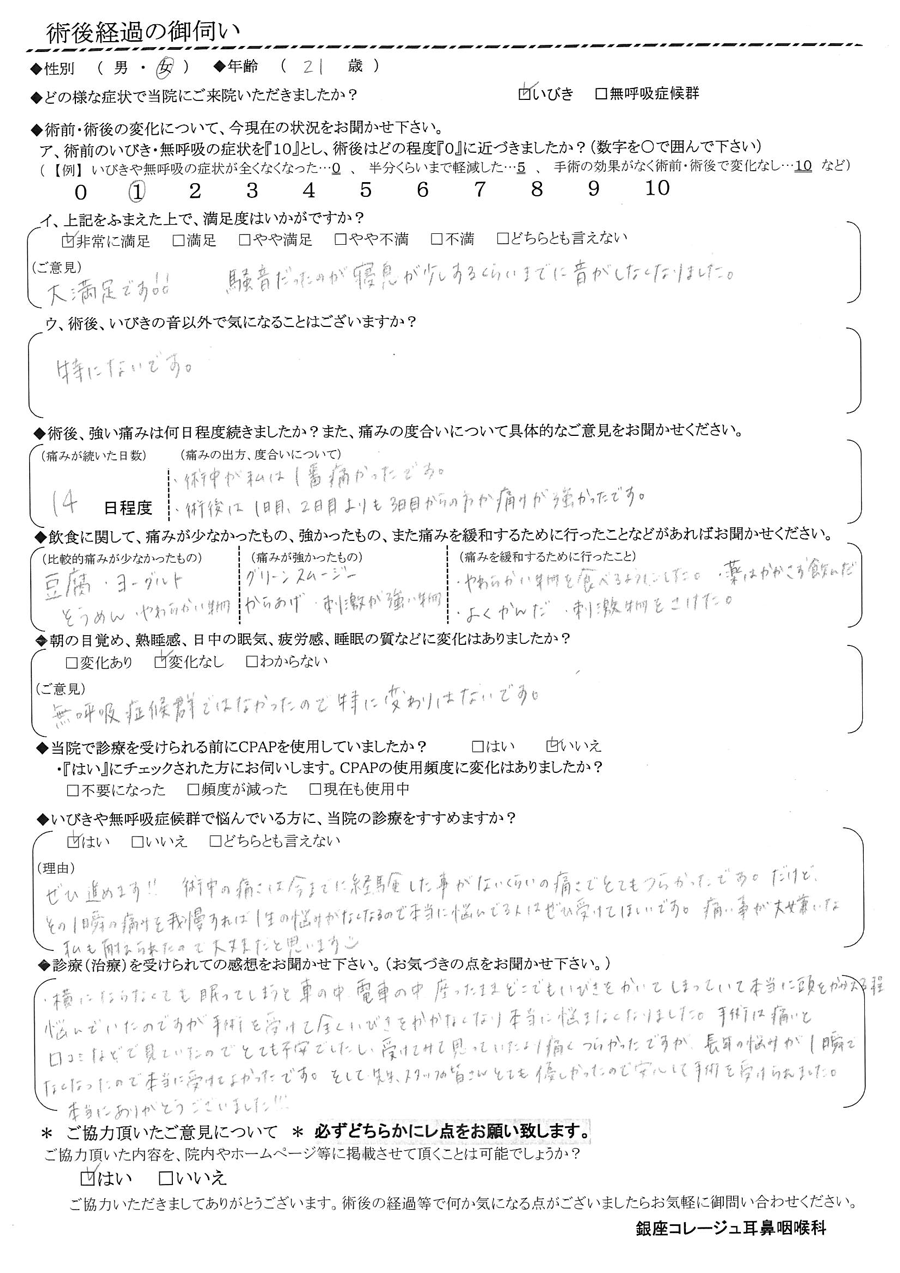 術後経過の御伺い
◆性別 ( 男 ・ 女 ) ◆年齢 ( 21 歳 )
◆どの様な症状で当院にご来院いただきましたか? ☑いびき □無呼吸症候群
◆術前・術後の変化について、今現在の状況をお聞かせ下さい。
ア、術前のいびき・無呼吸の症状を『10』とし、術後はどの程度『0』に近づきましたか?(数字を○で囲んで下さい)
(【例】いびきや無呼吸の症状が全くなくなった…0 、 半分くらいまで軽減した…5 、 手術の効果がなく術前・術後で変化なし…10 など)
0 ① 2 3 4 5 6 7 8 9 10
イ、上記をふまえた上で、満足度はいかがですか?
☑非常に満足 □満足 □やや満足 □やや不満 □不満 □どちらとも言えない
(ご意見)
大満足です!! 騒音だったのが寝息が少しするくらいまでに音がしなくなりました。
ウ、術後、いびきの音以外で気になることはございますか?
特にないです。
◆術後、強い痛みは何日程度続きましたか?また、痛みの度合いについて具体的なご意見をお聞かせください。
(痛みが続いた日数) (痛みの出方、度合いについて)
・術中が私は1番痛かったです。
14 日程度 ・術後は1日目、2日目よりも3日目からの方が痛みが強かったです。
◆飲食に関して、痛みが少なかったもの、強かったもの、また痛みを緩和するために行ったことなどがあればお聞かせください。
(比較的痛みが少なかったもの) (痛みが強かったもの) (痛みを緩和するために行ったこと)
豆腐・ヨーグルト グリーンスムージー ・やわらかい物を食べるようにした。 ・薬はかかさず飲んだ
そうめん・やわらかい物 からあげ・刺激が強い物 ・よくかんだ ・刺激物をさけた。
◆朝の目覚め、熟睡感、日中の眠気、疲労感、睡眠の質などに変化はありましたか?
□変化あり ☑変化なし □わからない
(ご意見)
無呼吸症候群ではなかったので特に変わりはないです。
◆当院で診療を受けられる前にCPAPを使用していましたか? □はい ☑いいえ
・『はい』にチェックされた方にお伺いします。CPAPの使用頻度に変化はありましたか?
□不要になった □頻度が減った □現在も使用中
◆いびきや無呼吸症候群で悩んでいる方に、当院の診療をすすめますか?
☑はい □いいえ □どちらとも言えない
(理由)
ぜひ進めます!! 術中の痛さは今までに経験した事がないくらいの痛さでとてもつらかったです。だけど、
その1瞬の痛みを我慢すれば1生の悩みがなくなるので本当に悩んでる人はぜひ受けてほしいです。痛い事が大嫌いな
私も耐えられたので大丈夫だと思います☺
◆診療(治療)を受けられての感想をお聞かせ下さい。(お気づきの点をお聞かせ下さい。)
・横にならなくても眠ってしまうと車の中 電車の中 座ったままどこでもいびきをかいてしまっていて本当に頭をかかえる程
悩んでいたのですが手術を受けて全くいびきをかかなくなり本当に悩まなくなりました。手術は痛いと
口コミなどで見ていたのでとても不安でしたし、受けてみて思っていたより痛くつらかったですが、長年の悩みが1瞬で
なくなったので本当に受けてよかったです。そして先生、スタッフの皆さんとても優しかったので安心して手術を受けられました。
本当にありがとうございました!!!
＊ ご協力頂いたご意見について ＊ 必ずどちらかにレ点をお願い致します。
ご協力頂いた内容を、院内やホームページ等に掲載させて頂くことは可能でしょうか?
☑はい □いいえ
ご協力いただきましてありがとうございます。術後の経過等で何か気になる点がございましたらお気軽に御問い合わせください。
銀座コレージュ耳鼻咽喉科